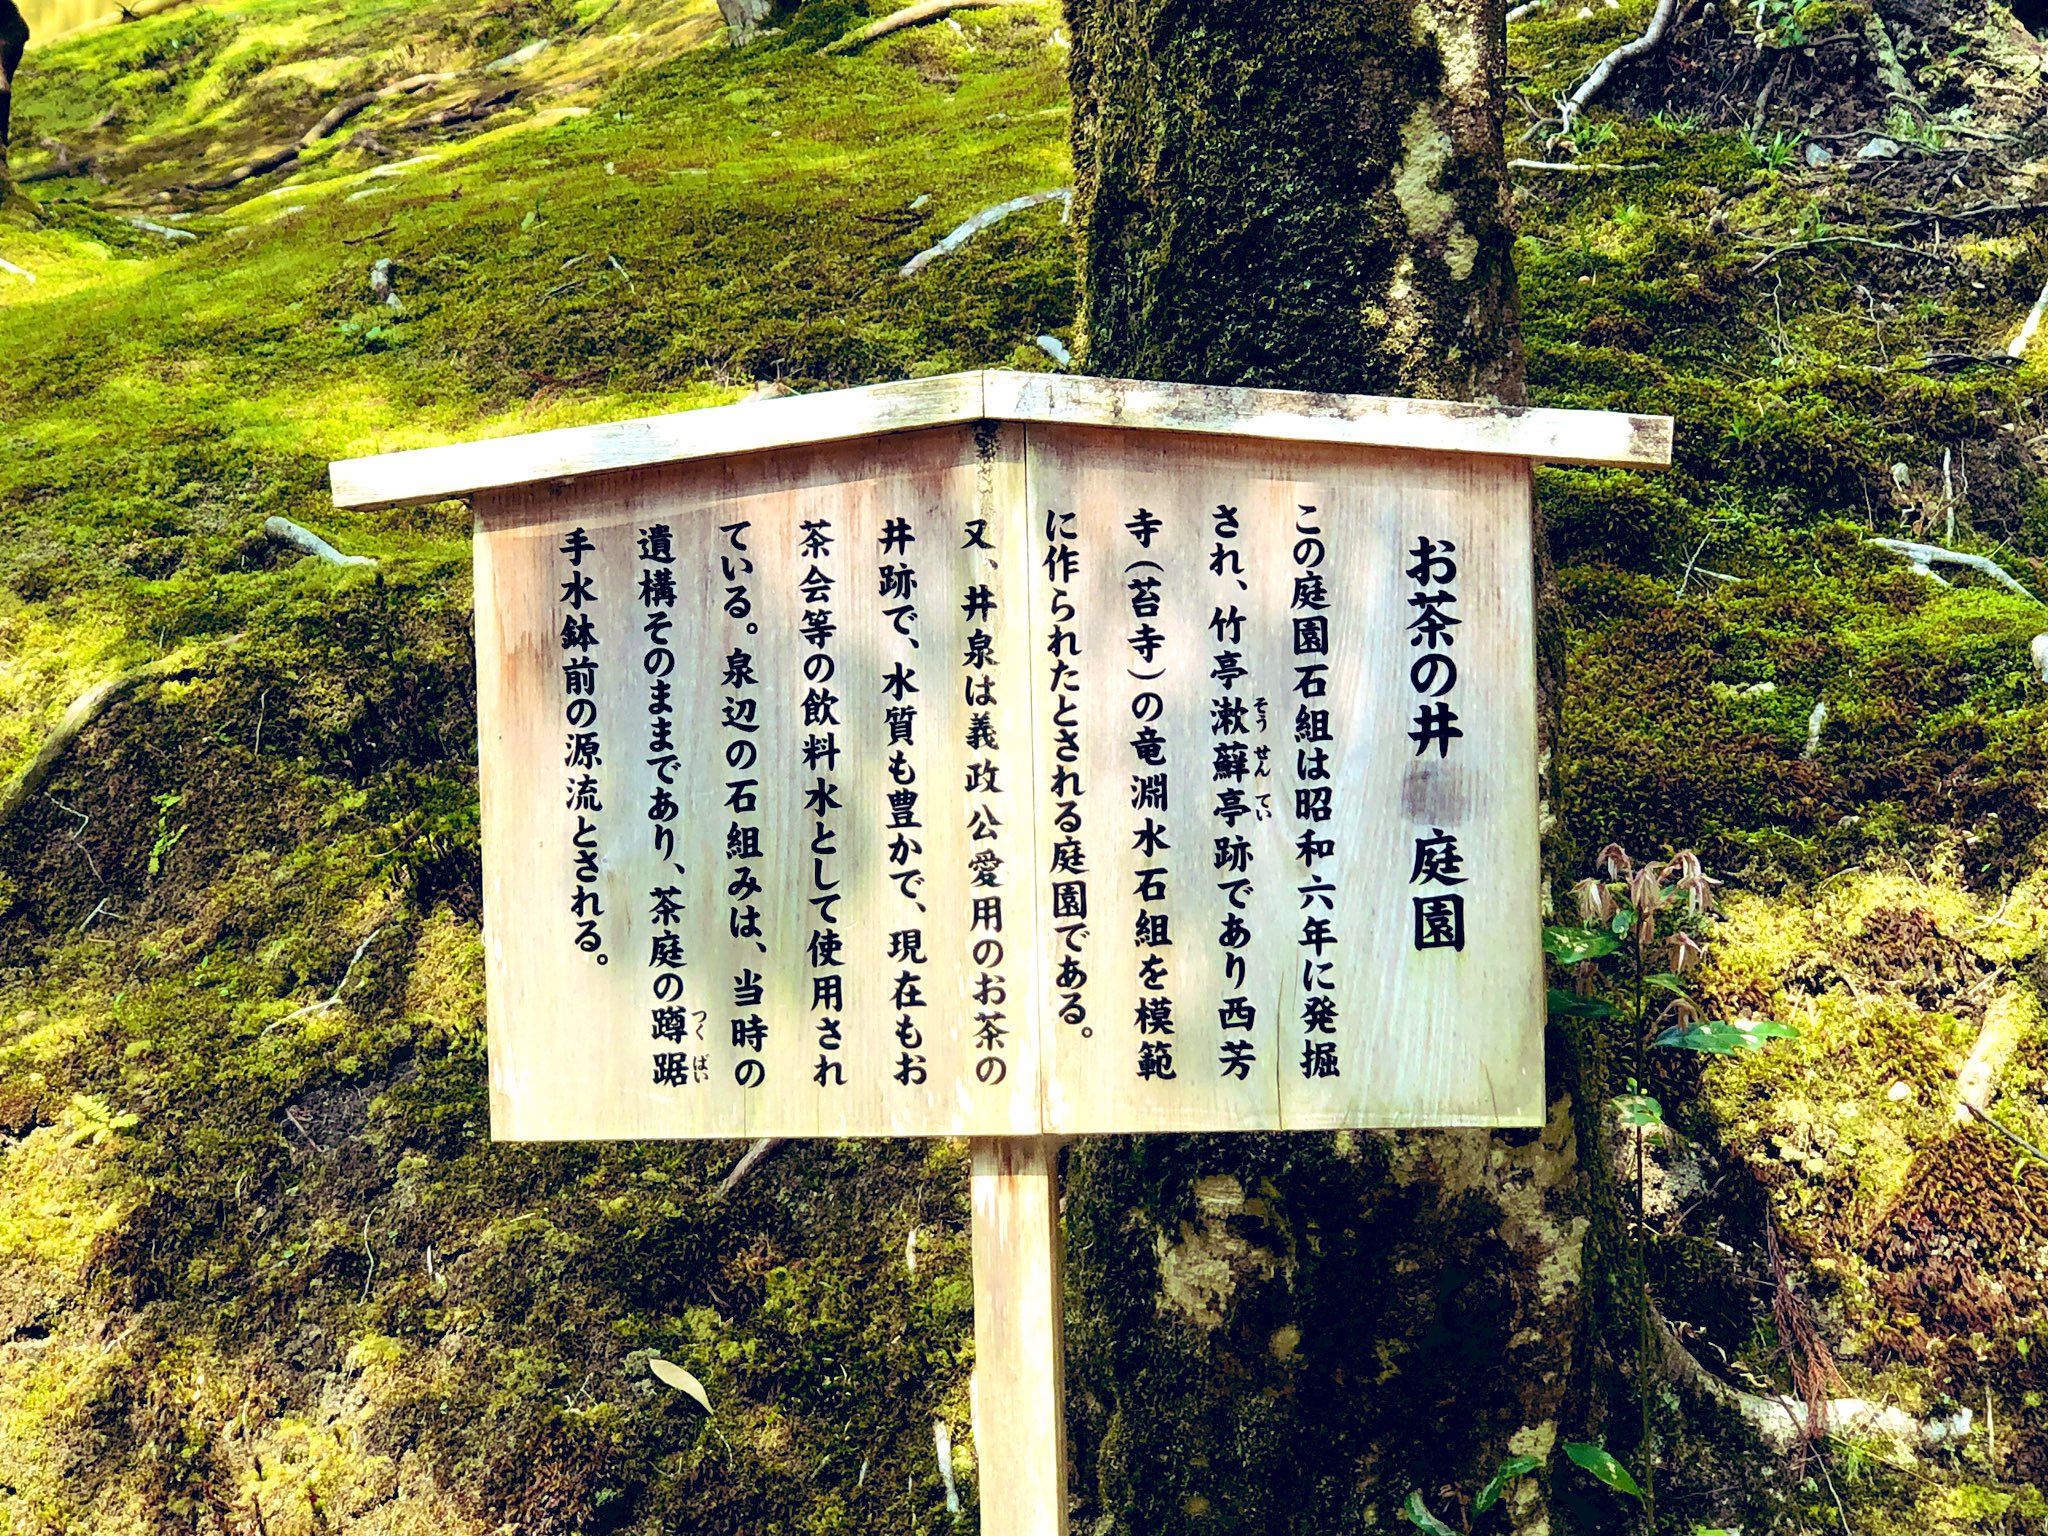 お茶の井 庭園
この庭園石組は昭和六年に発掘
され、竹亭漱蘚亭跡であり西芳
そう せん てい
寺(苔寺)の竜淵水石組を模範
に作られたとされる庭園である。
又、井泉は義政公愛用のお茶の
井跡で、水質も豊かで、現在もお
茶会等の飲料水として使用され
ている。泉辺の石組みは、当時の
遺構そのままであり、茶庭の蹲踞
つくばい
手水鉢前の源流とされる。